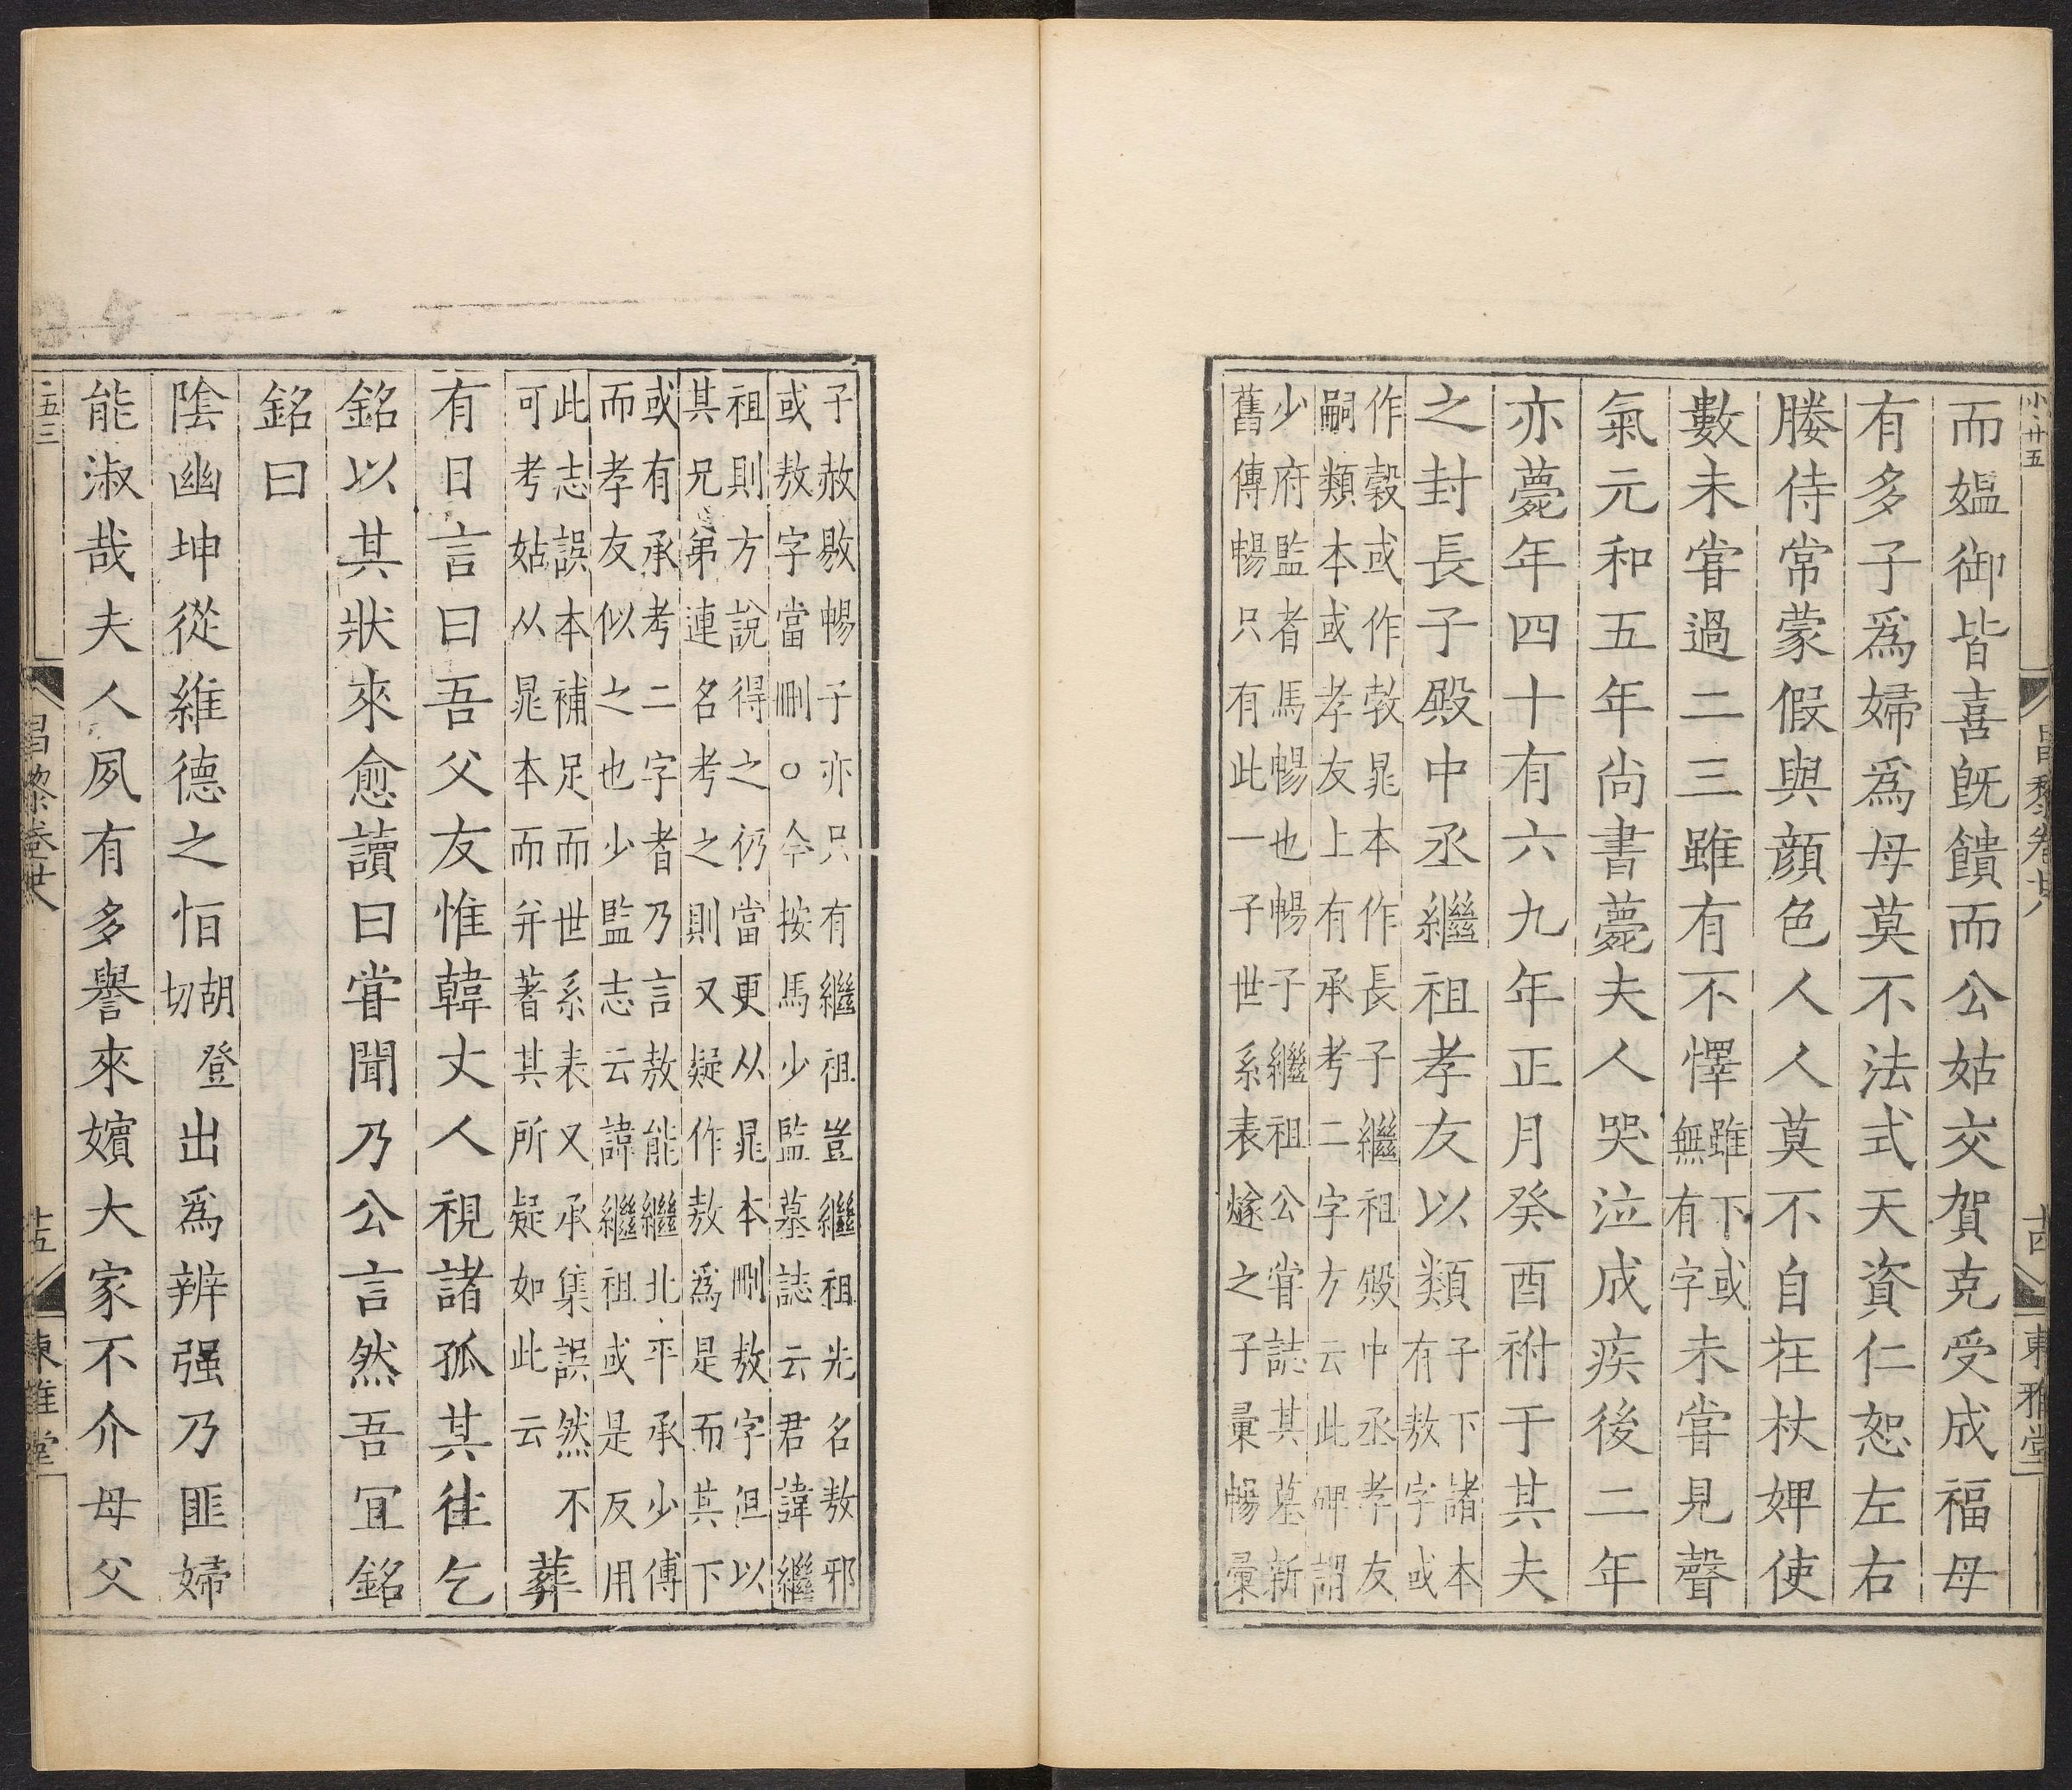 小廿五
昌黎卷廿八
十四
東雅堂
而媼御皆喜既饋而公姑交賀克受成福母
有多子爲婦爲母莫不法式天資仁恕左右
媵侍常蒙假與顔色人人莫不自在杖婢使
數未甞過二三雖有不懌雖下或無有字未甞見聲
氣元和五年尚書薨夫人哭泣成疾後二年
亦薨年四十有六九年正月癸酉祔于其夫
之封長子殿中丞繼祖孝友以類子下諸本有敖字字或
作榖或作敦晁本作長子繼祖殿中丞孝友
嗣類本或孝友上有承考二字方云此碑謂
少府監者馬暢也暢子繼祖公甞誌其墓新
舊傳暢只有此一子世系表燧之子彚暢彚
子赦敭暢子亦只有繼祖豈繼祖先名敖邪
或敖字當刪○今按馬少監墓誌云君諱繼
祖則方說得之仍當更从晁本刪敖字但以
其兄第連名考之則又疑作敖爲是而其下
或有承考二字者乃言敖能繼北平承少傅
而孝友似之也少監志云諱繼祖或是反用
此志誤本補足而世系表又承集誤然不
可考姑从晁本而并著其所疑如此云葬
有日言曰吾父友惟韓丈人視諸孤其往乞
銘以其狀來愈讀曰甞聞乃公言然吾宜銘
銘曰
陰幽坤從維德之恒胡登切出爲辨强乃匪婦
能淑哉夫人夙有多譽來嬪大家不介母父
二五三
昌黎卷廿八
十五
東雅堂